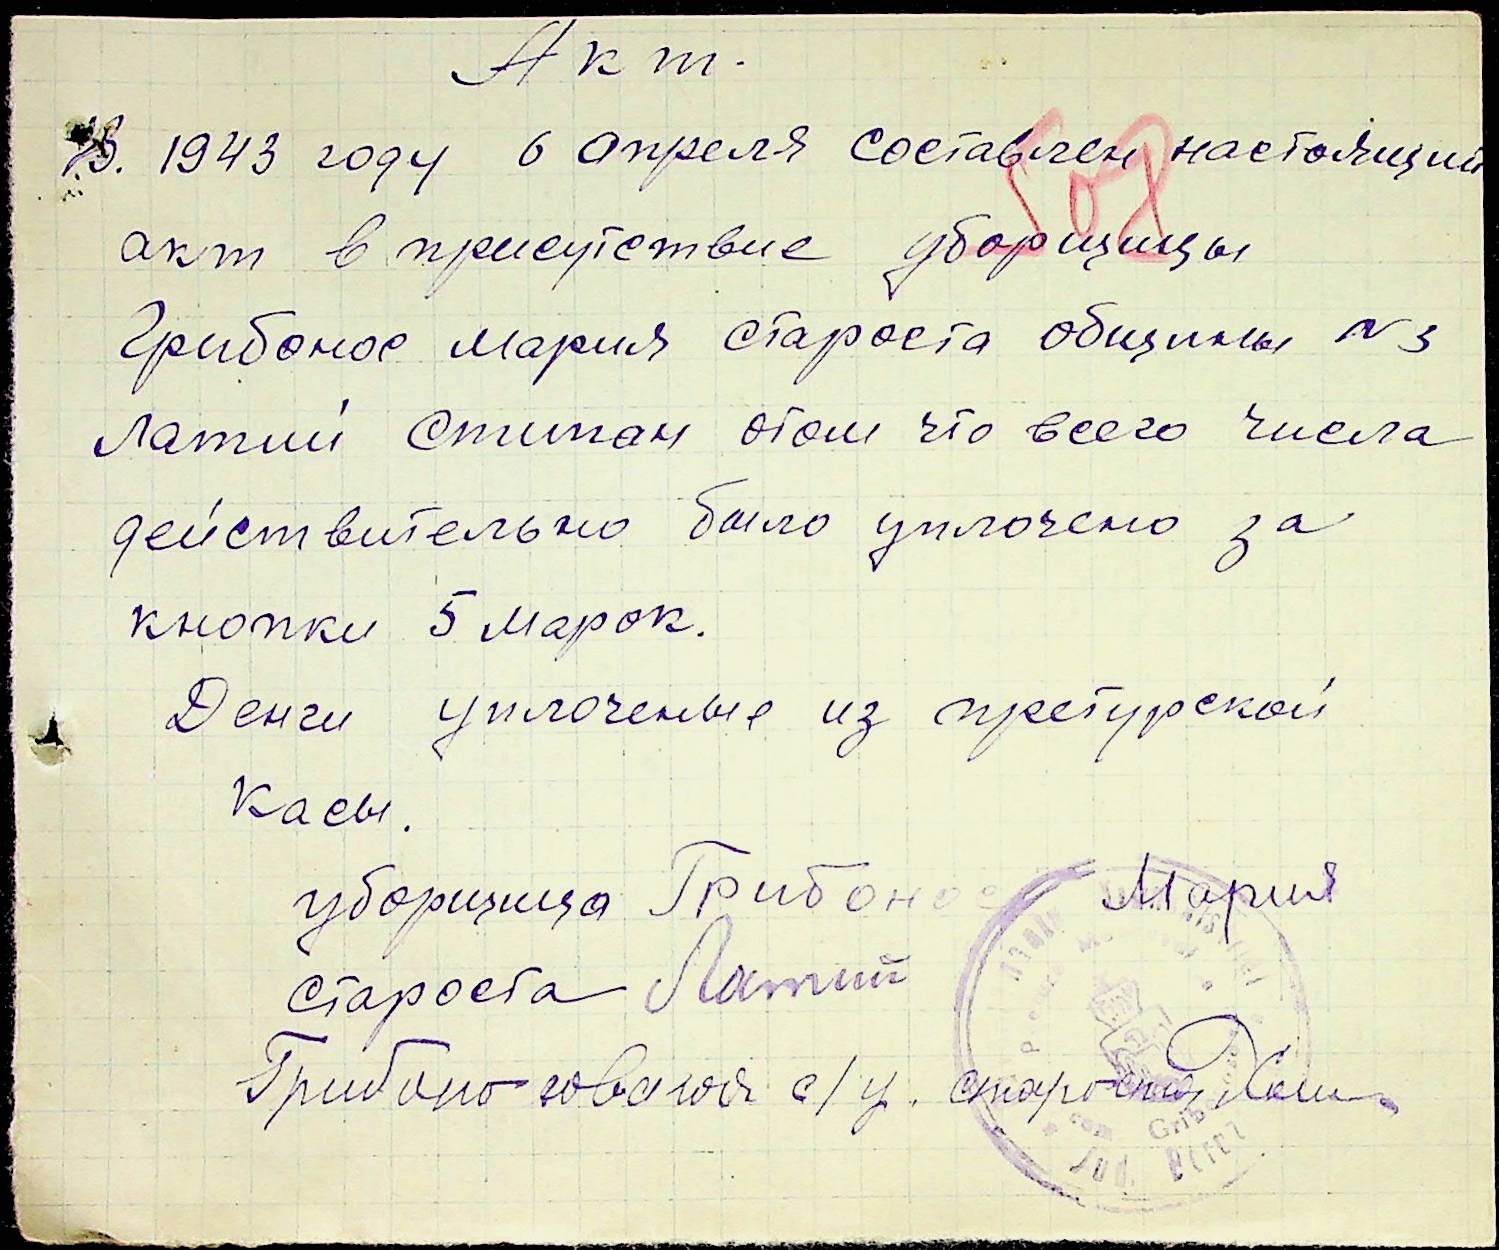 Акт.
В. 1943 году 6 апреля составлен настоящий
508
акт в присутствие уборщицы
Грибонос Мария староста общины N 3
Латий Стипан отом что всего числа
действительно было уплочено за
кнопки 5 марок.
Денги уплоченые из претурской
касы.
уборщица Грибонос Мария
староста Латий
с/у. староста
com Grib
Jud. Berez